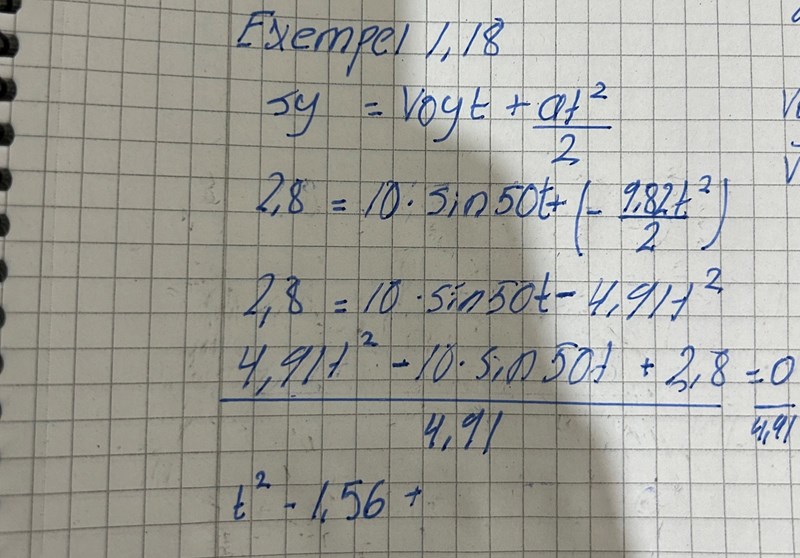 Exempel 1,18
sy = Voyt + at²/2
2,8 = 10 · sin50t + (- 9,82t²/2)
2,8 = 10 · sin50t - 4,91t²
4,91t² - 10 · sin50t + 2,8 = 0
4,91 4,91
t² - 1,56 +